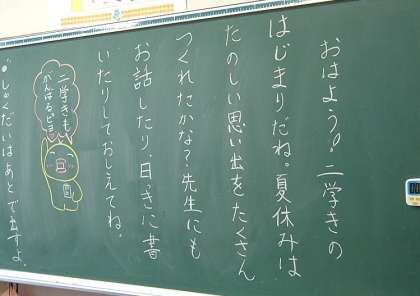 おはよう！二学きの
はじまりだね。夏休みは
たのしい思い出をたくさん
つくれたかな？先生にも
お話したり、日っきに書
いたりしておしえてね。
二学きも
がんばるピヨ
●しゅくだいはあとで出すよ。